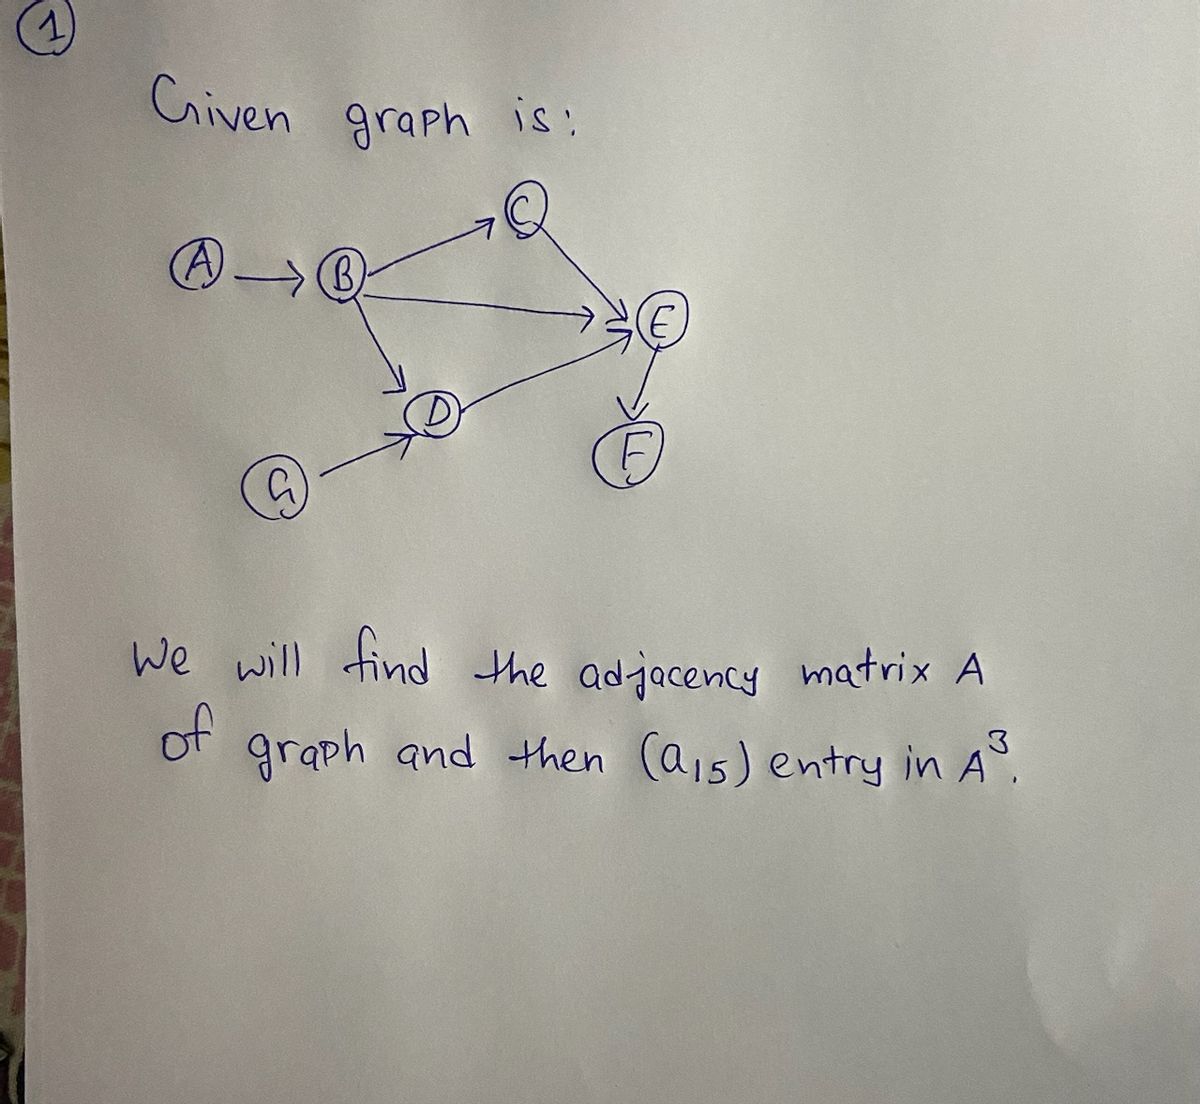 1
Given graph is:
C
A B
E
D
F
G
We will find the adjacency matrix A
of graph and then (a15) entry in A³.